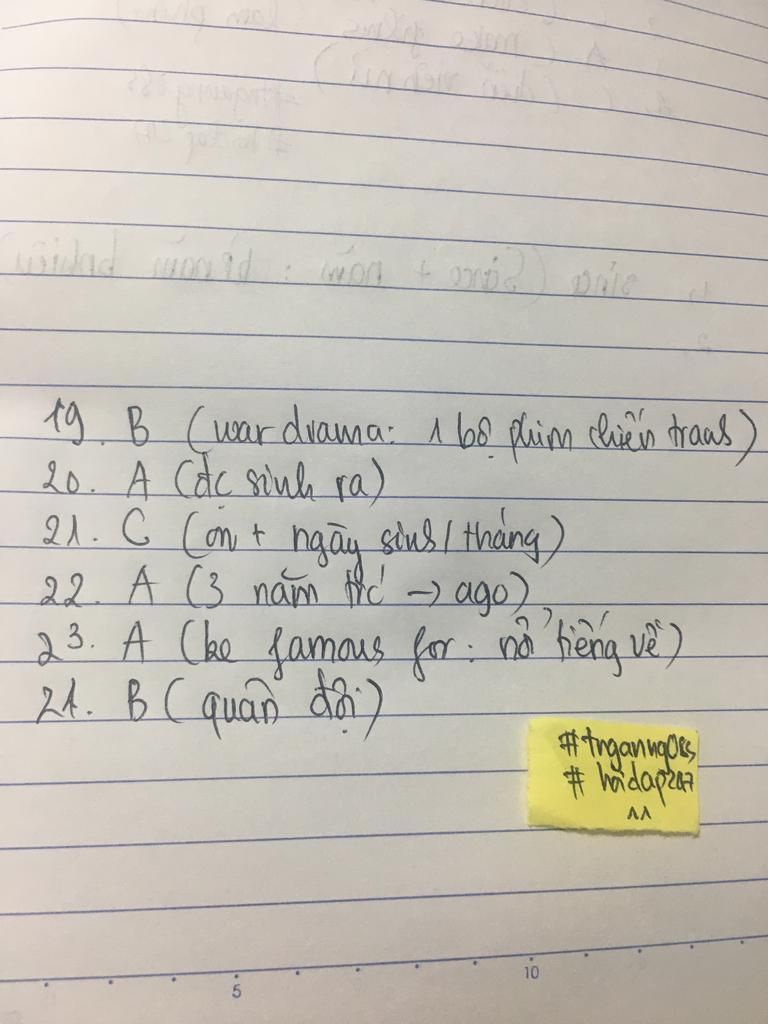 19. B (war drama: 1 bộ phim chiến tranh)
20. A (đc sinh ra)
21. C (on + ngày sinh/tháng)
22. A (3 năm trc → ago)
23. A (be famous for: nổi tiếng về)
24. B (quân đội)
#trgannq085
#hoidap247
^^
5 10